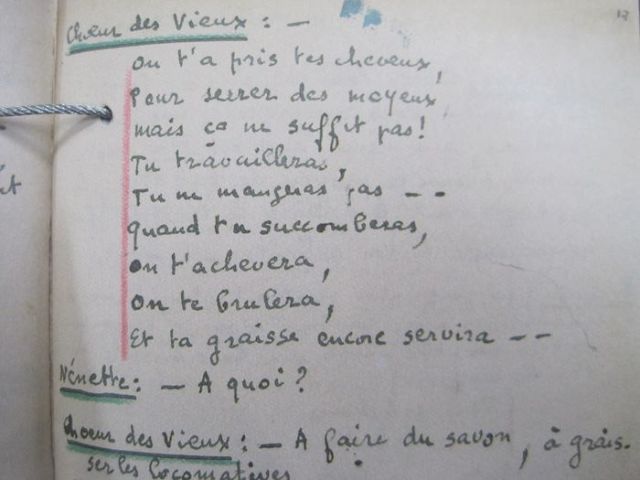 Chœur des Vieux : —
On t'a pris tes cheveux,
Pour serrer des moyeux
mais ça ne suffit pas!
Tu travailleras,
Tu ne mangeras pas --
Quand tu succomberas,
On t'achevera,
On te brulera,
Et ta graisse encore servira --
Nénette: — A quoi?
Chœur des Vieux: — A faire du savon, à grais-
ser les locomotives